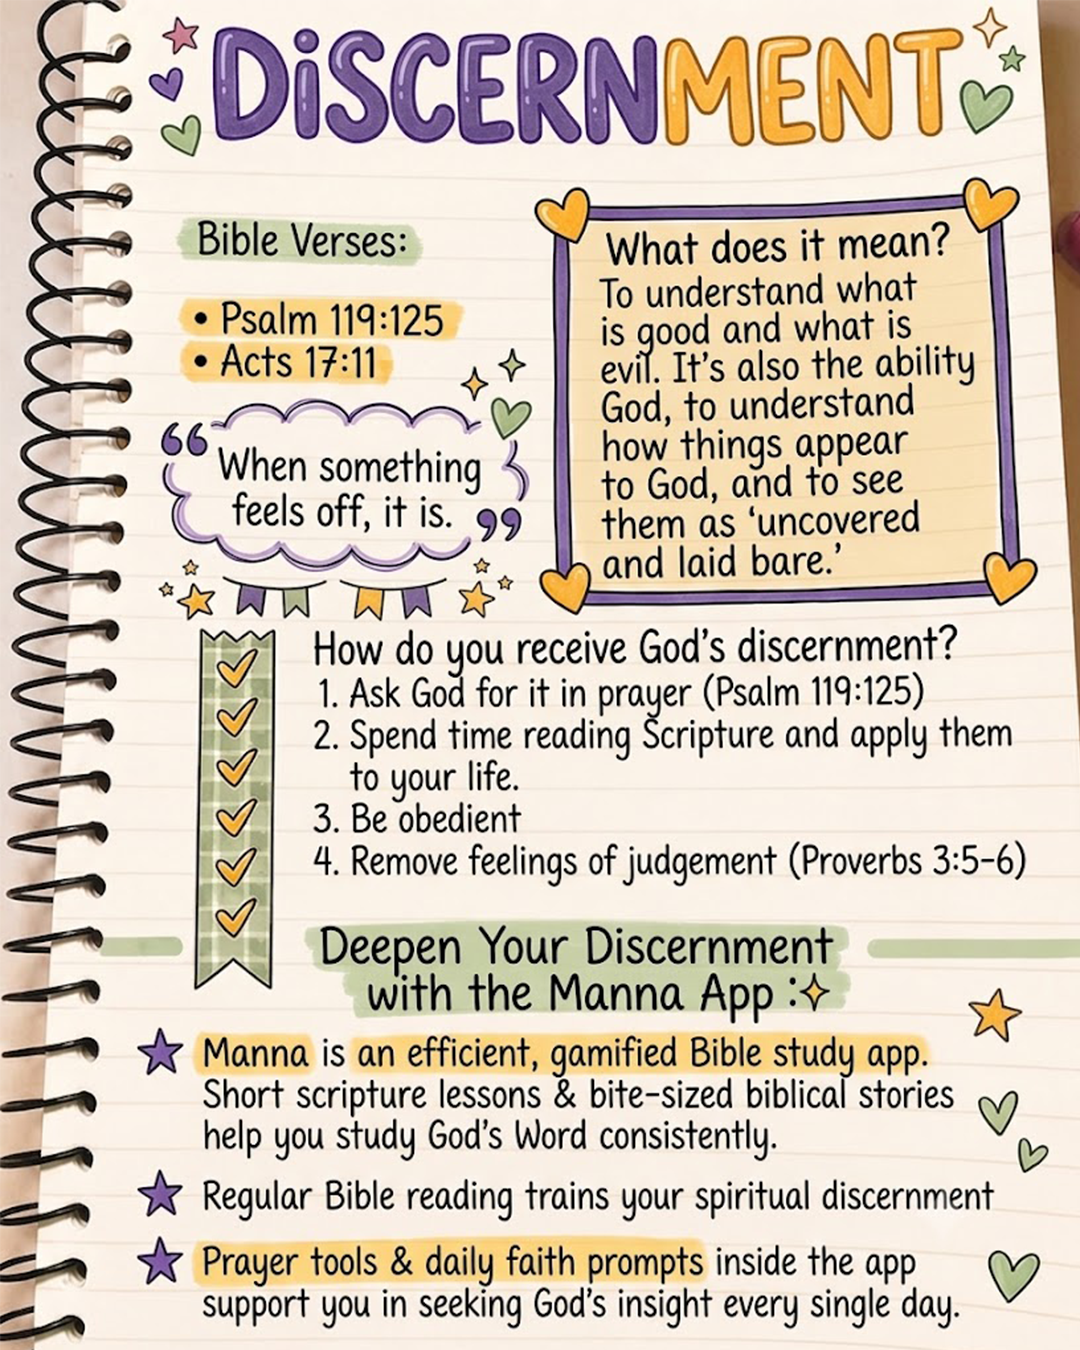 DiSCERNMENT
Bible Verses:
• Psalm 119:125
• Acts 17:11
“When something
feels off, it is.”
What does it mean?
To understand what
is good and what is
evil. It's also the ability
God, to understand
how things appear
to God, and to see
them as ‘uncovered
and laid bare.’
How do you receive God's discernment?
1. Ask God for it in prayer (Psalm 119:125)
2. Spend time reading Scripture and apply them
to your life.
3. Be obedient
4. Remove feelings of judgement (Proverbs 3:5-6)
Deepen Your Discernment
with the Manna App :
Manna is an efficient, gamified Bible study app.
Short scripture lessons & bite-sized biblical stories
help you study God's Word consistently.
Regular Bible reading trains your spiritual discernment
Prayer tools & daily faith prompts inside the app
support you in seeking God's insight every single day.